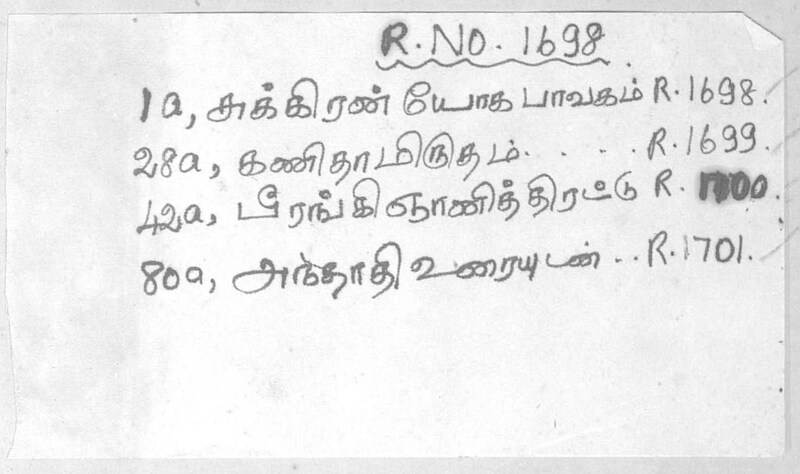 R.NO. 1698
1a, சுக்கிரன் யோக பாவகம் R.1698.
28a, கணிதாமிருதம். . . . . R.1699.
42a, பீரங்கிஞானித்திரட்டு R. 1700.
80a, அந்தாதி உரையுடன். . . R.1701.